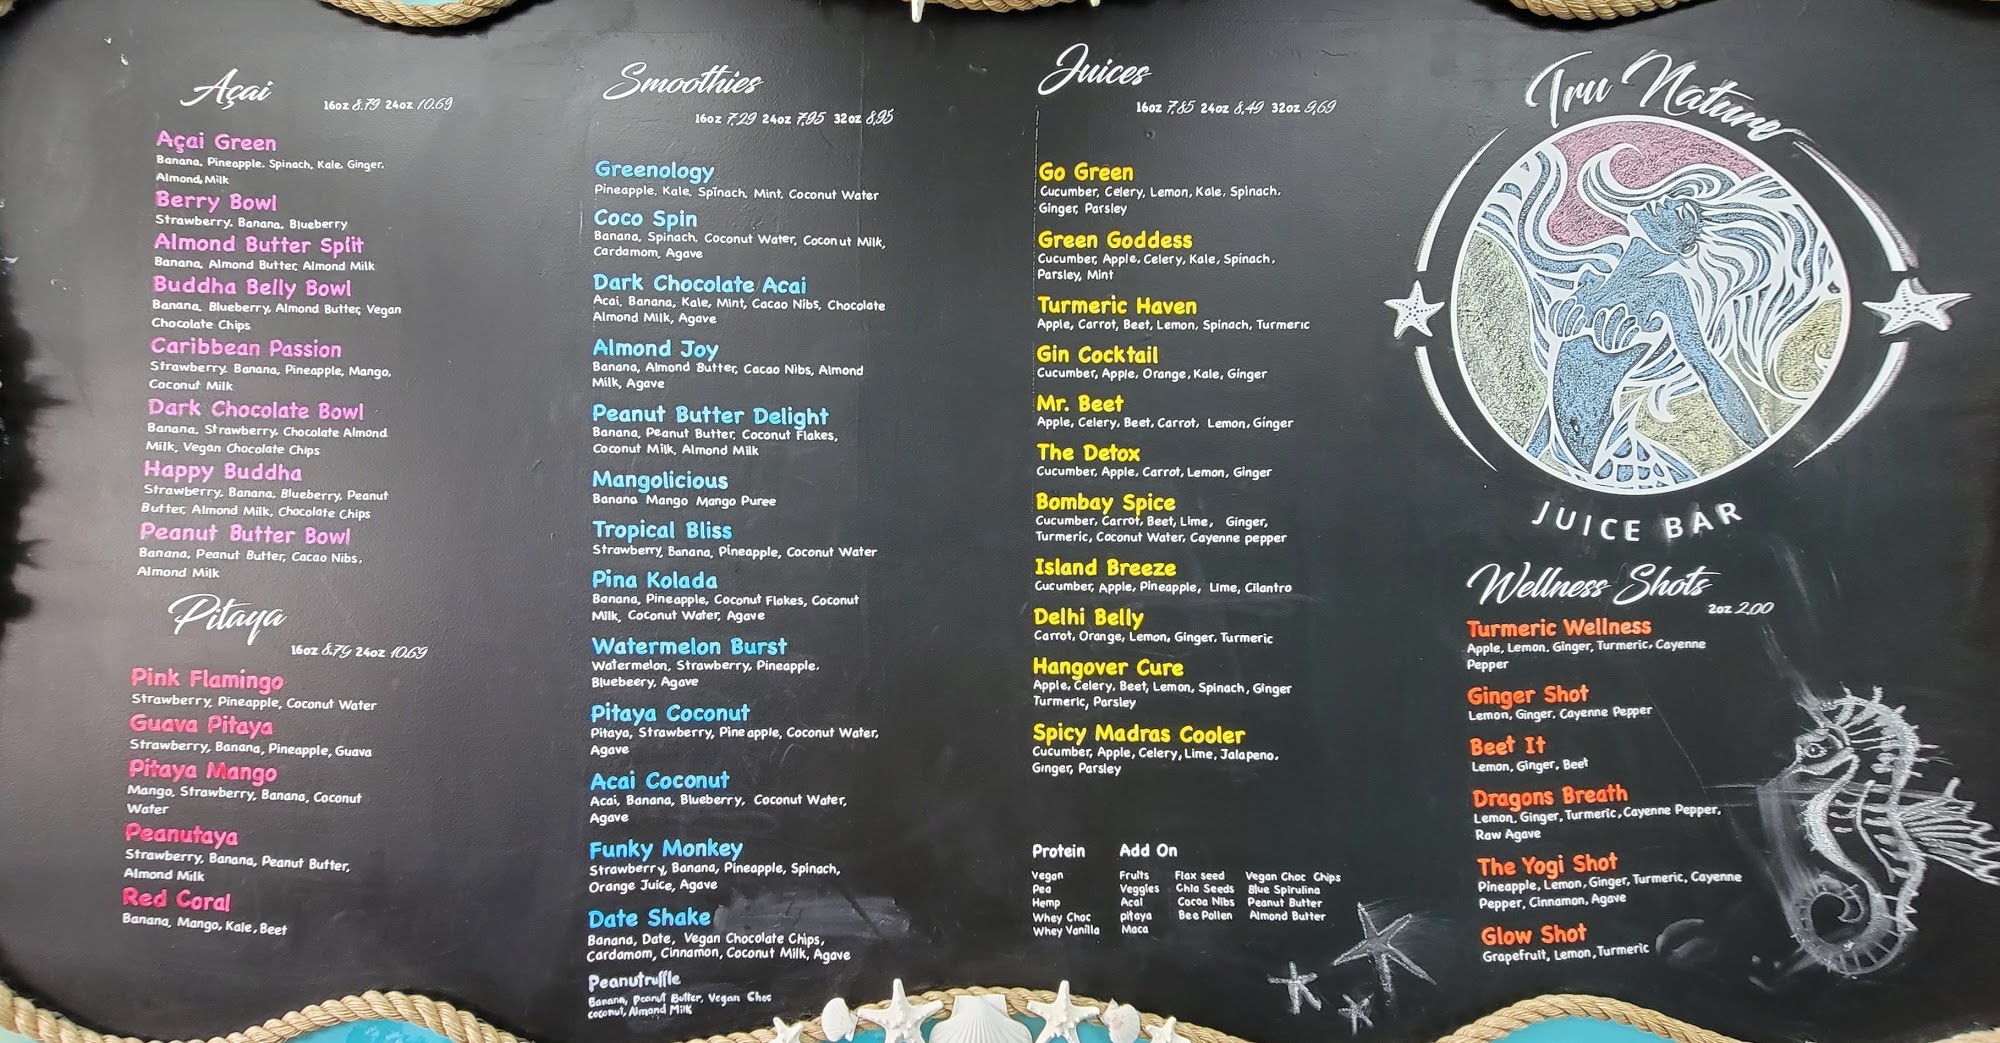 Açai
16oz 8.79 24oz 10.69
Açai Green
Banana, Pineapple, Spinach, Kale, Ginger,
Almond, Milk
Berry Bowl
Strawberry, Banana, Blueberry
Almond Butter Split
Banana, Almond Butter, Almond Milk
Buddha Belly Bowl
Banana, Blueberry, Almond Butter, Vegan
Chocolate Chips
Caribbean Passion
Strawberry, Banana, Pineapple, Mango,
Coconut Milk
Dark Chocolate Bowl
Banana, Strawberry, Chocolate Almond
Milk, Vegan Chocolate Chips
Happy Buddha
Strawberry, Banana, Blueberry, Peanut
Butter, Almond Milk, Chocolate Chips
Peanut Butter Bowl
Banana, Peanut Butter, Cacao Nibs,
Almond Milk
Pitaya
16oz 8.79 24oz 10.69
Pink Flamingo
Strawberry, Pineapple, Coconut Water
Guava Pitaya
Strawberry, Banana, Pineapple, Guava
Pitaya Mango
Mango, Strawberry, Banana, Coconut
Water
Peanutaya
Strawberry, Banana, Peanut Butter,
Almond Milk
Red Coral
Banana, Mango, Kale, Beet
Smoothies
16oz 7.29 24oz 7.95 32oz 8.95
Greenology
Pineapple, Kale, Spinach, Mint, Coconut Water
Coco Spin
Banana, Spinach, Coconut Water, Coconut Milk,
Cardamom, Agave
Dark Chocolate Acai
Acai, Banana, Kale, Mint, Cacao Nibs, Chocolate
Almond Milk, Agave
Almond Joy
Banana, Almond Butter, Cacao Nibs, Almond
Milk, Agave
Peanut Butter Delight
Banana, Peanut Butter, Coconut Flakes,
Coconut Milk, Almond Milk
Mangolicious
Banana Mango Mango Puree
Tropical Bliss
Strawberry, Banana, Pineapple, Coconut Water
Pina Kolada
Banana, Pineapple, Coconut Flakes, Coconut
Milk, Coconut Water, Agave
Watermelon Burst
Watermelon, Strawberry, Pineapple,
Bluebeery, Agave
Pitaya Coconut
Pitaya, Strawberry, Pineapple, Coconut Water,
Agave
Acai Coconut
Acai, Banana, Blueberry, Coconut Water,
Agave
Funky Monkey
Strawberry, Banana, Pineapple, Spinach,
Orange Juice, Agave
Date Shake
Banana, Date, Vegan Chocolate Chips,
Cardamom, Cinnamon, Coconut Milk, Agave
Peanutruffle
Banana, Peanut Butter, Vegan Choc
coconut, Almond Milk
Juices
16oz 7.85 24oz 8.49 32oz 9.69
Go Green
Cucumber, Celery, Lemon, Kale, Spinach,
Ginger, Parsley
Green Goddess
Cucumber, Apple, Celery, Kale, Spinach,
Parsley, Mint
Turmeric Haven
Apple, Carrot, Beet, Lemon, Spinach, Turmeric
Gin Cocktail
Cucumber, Apple, Orange, Kale, Ginger
Mr. Beet
Apple, Celery, Beet, Carrot, Lemon, Ginger
The Detox
Cucumber, Apple, Carrot, Lemon, Ginger
Bombay Spice
Cucumber, Carrot, Beet, Lime, Ginger,
Turmeric, Coconut Water, Cayenne pepper
Island Breeze
Cucumber, Apple, Pineapple, Lime, Cilantro
Delhi Belly
Carrot, Orange, Lemon, Ginger, Turmeric
Hangover Cure
Apple, Celery, Beet, Lemon, Spinach, Ginger
Turmeric, Parsley
Spicy Madras Cooler
Cucumber, Apple, Celery, Lime, Jalapeno,
Ginger, Parsley
Protein Add On
Vegan Fruits Flax seed Vegan Choc Chips
Pea Veggies Chia Seeds Blue Spirulina
Hemp Acai Cocoa Nibs Peanut Butter
Whey Choc pitaya Bee Pollen Almond Butter
Whey Vanilla Maca
Tru Nature
JUICE BAR
Wellness Shots
2oz 2.00
Turmeric Wellness
Apple, Lemon, Ginger, Turmeric, Cayenne
Pepper
Ginger Shot
Lemon, Ginger, Cayenne Pepper
Beet It
Lemon, Ginger, Beet
Dragons Breath
Lemon, Ginger, Turmeric, Cayenne Pepper,
Raw Agave
The Yogi Shot
Pineapple, Lemon, Ginger, Turmeric, Cayenne
Pepper, Cinnamon, Agave
Glow Shot
Grapefruit, Lemon, Turmeric